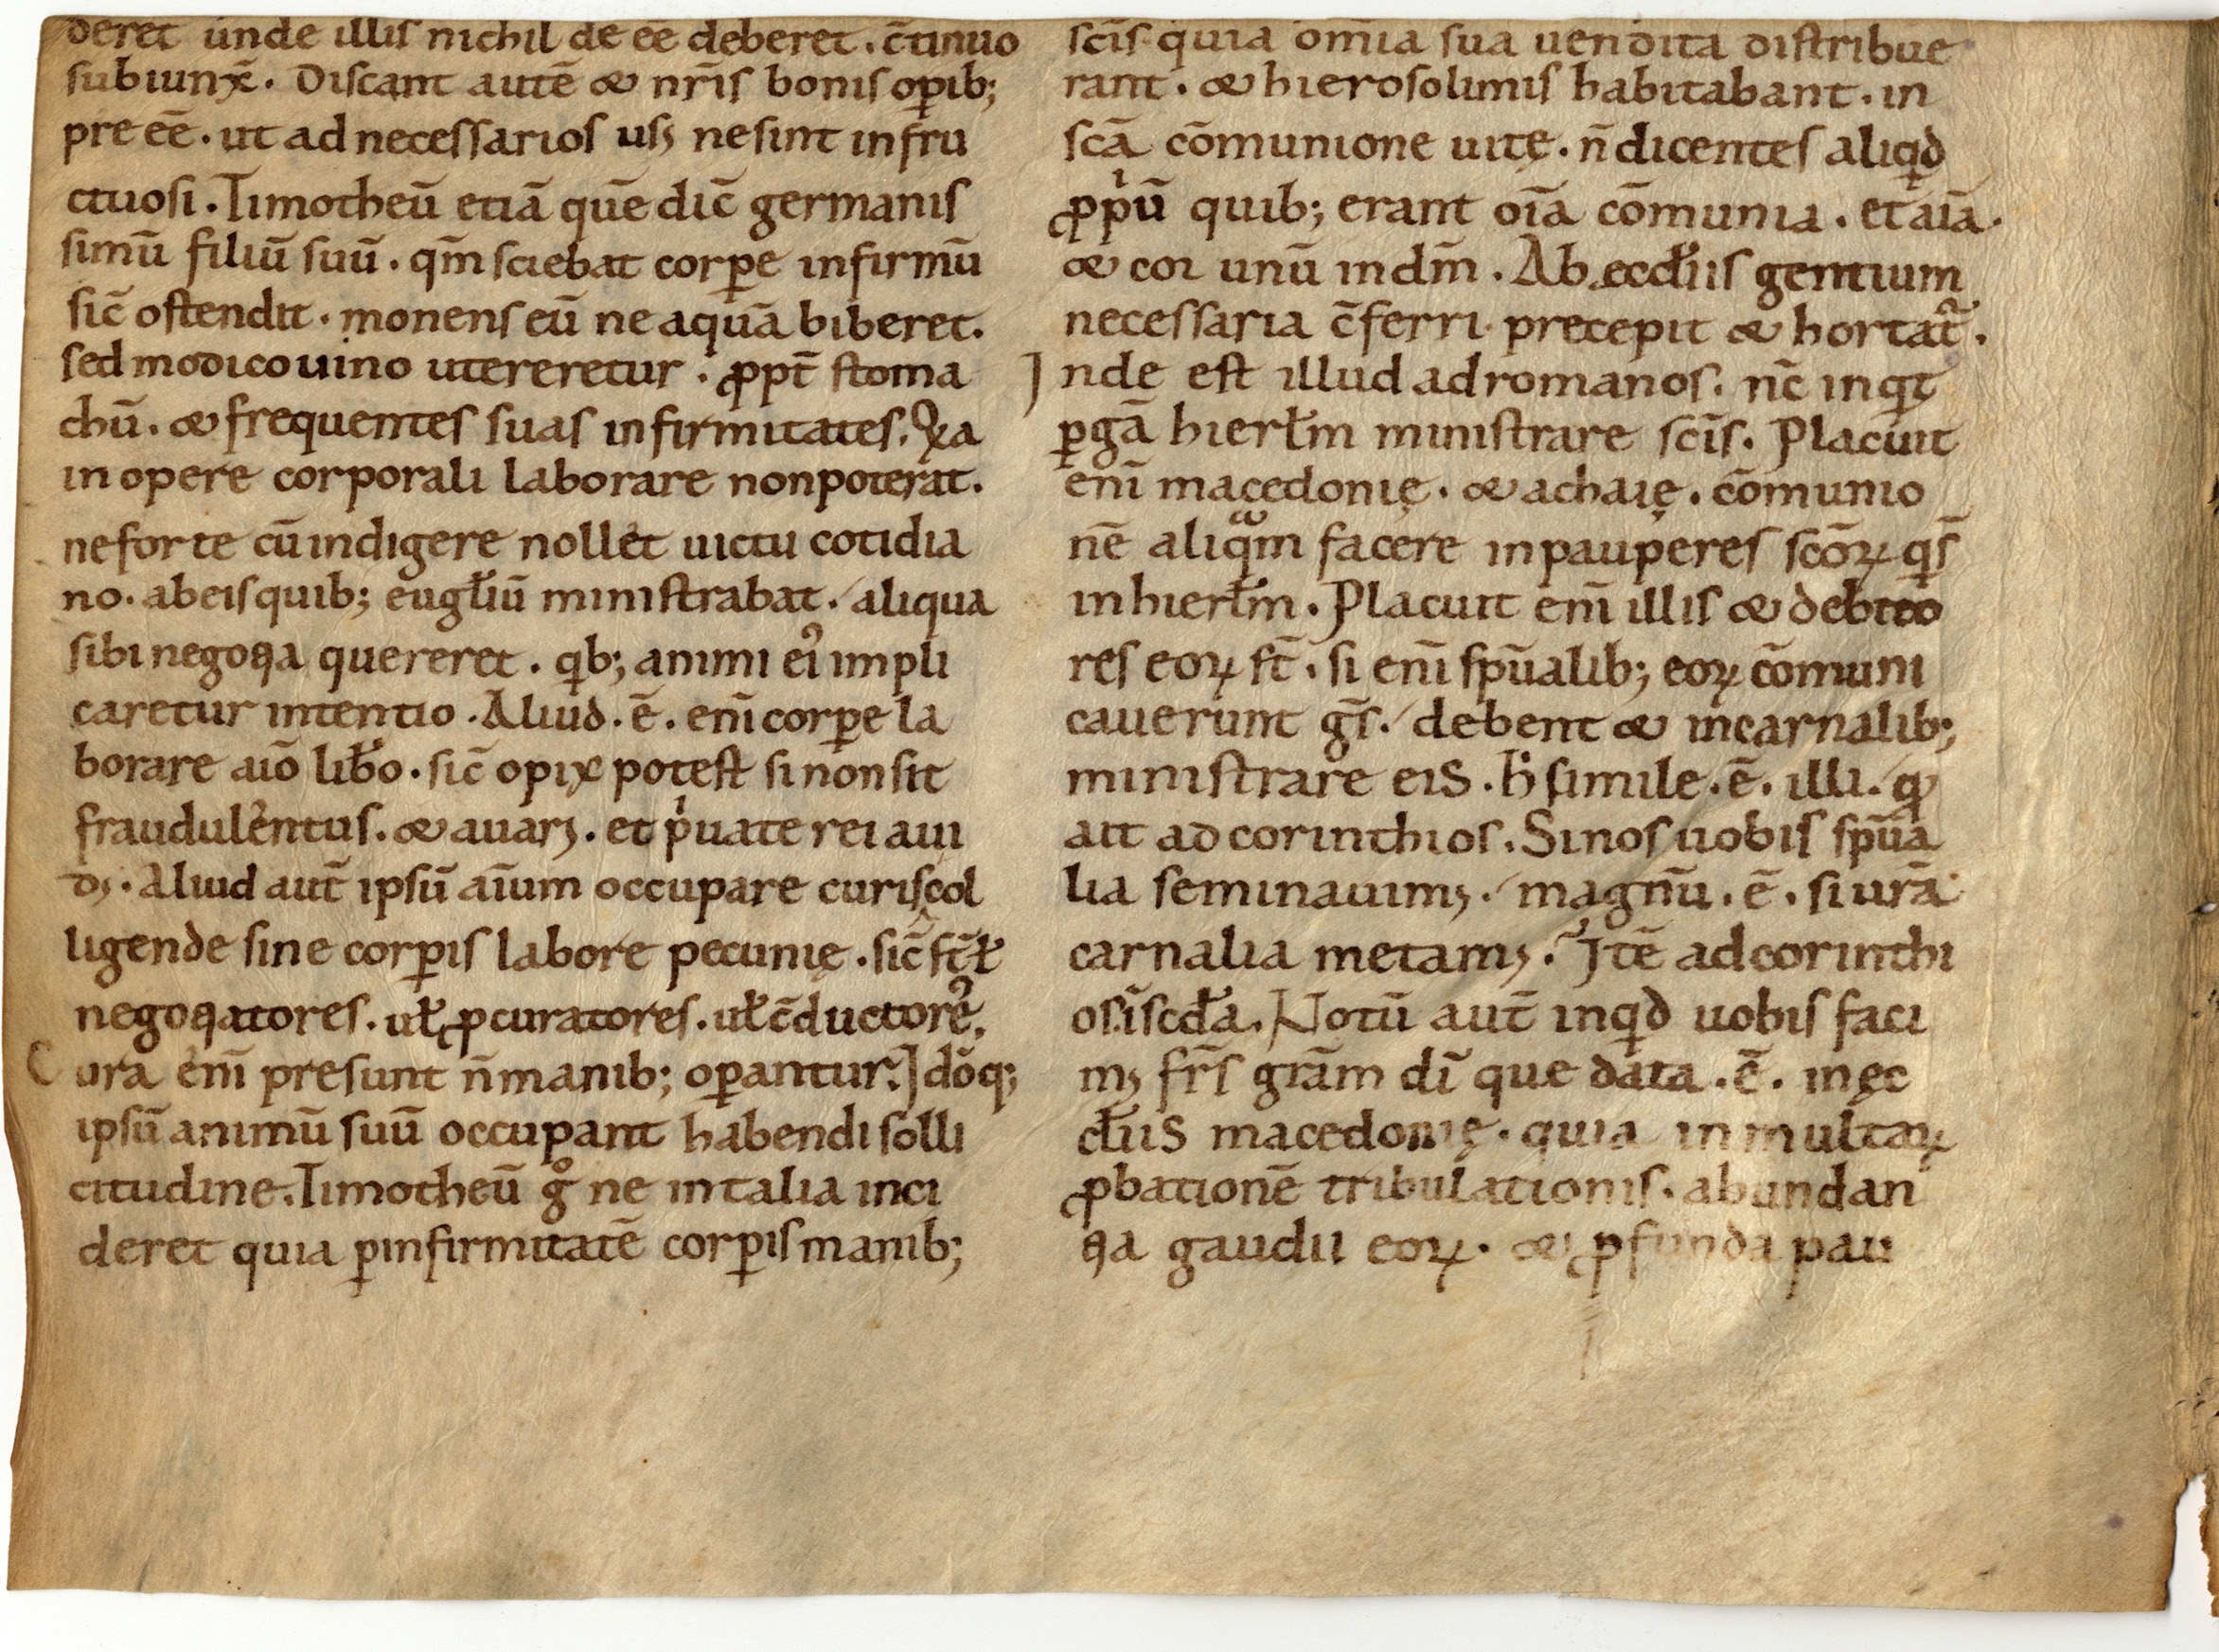 deret unde illis nichil de eē deberet. c̄tinuo
subiunx̄. Discant autē & nr̄is bonis op̄ib;
pre eē. ut ad necessarios usꝫ ne sint infru
ctuosi. Timotheū etiā quē dic̄ germanis
simū filiū suū. qm̄ sciebat corꝑe infirmū
sic̄ ostendit. monens eū ne aquā biberet.
sed modico uino utereretur. ꝓpt̄ stoma
chū. & frequentes suas infirmitates. Qͥa
in opere corporali laborare non poterat.
ne forte cū indigere nollet uictu cotidia
no. ab eis quib; eugłiū ministrabat. aliqua
sibi negoꝗa quereret. qͥb; animi eiꝰ impli
caretur intentio. Aliud .ē. eni̅ corꝑe la
borare aīo lib̄o. sic̄ opifx potest si non sit
fraudulentus. & auarꝫ. et pͥuate rei aui
dꝫ. Aliud aut̄ ipsū aīum occupare curis col
ligende sine corꝑis labore pecunię. sic̄ st̄ ł
negoꝗatores. uł ꝓcuratores. uł c̄ductoreˢ.
Cura eni̅ presunt n̄ manib; oꝑantur. Idōq;
ipsū animū suū occupant habendi solli
citudine. Timotheū gͦ ne in talia inci
deret quia ꝑ infirmitatē corꝑis manib;
scīs quia om̄ia sua uendita distribue
rant. & hierosolimis habitabant. in
scā cōmunione uitę. n̄ dicentes aliqͥd
ꝓpͥū quib; erant oīa cōmunia. et aīa.
& cor unū in dm̄. Ab eccłiis gentium
necessaria c̄ferri precepit & hortat᷑.
Inde est illud ad romanos. nc̄ inqͥt
ꝑgā hierłm ministrare scīs. Placuit
eni̅ macedonię. & achaię. cōmunio
nē aliqᵃm facere in pauperes scōꝝ qͥ s̄
in hierłm. Placuit eni̅ illis & debito
res eoꝝ st̄. si eni̅ spūalib; eoꝝ cōmuni
cauerunt gs̄. debent & in carnalib;
ministrare eis. h̄ simile .ē. illi. qͦ
ait ad corinthios. Si nos uobis spūa
lia seminauimꝫ. magnū .ē. si urā
carnalia metamꝫ. Itē ad corinthi
os. i scd̄a. Notū aut̄ inqͥd uobis faci
mꝫ fr̄s grām dī que data .ē. in ęc
cłiis macedonię. quia in multaꝝ
ꝓbationē tribulationis. abundan
ꝗa gaudii eoꝝ. & ꝓfunda pau